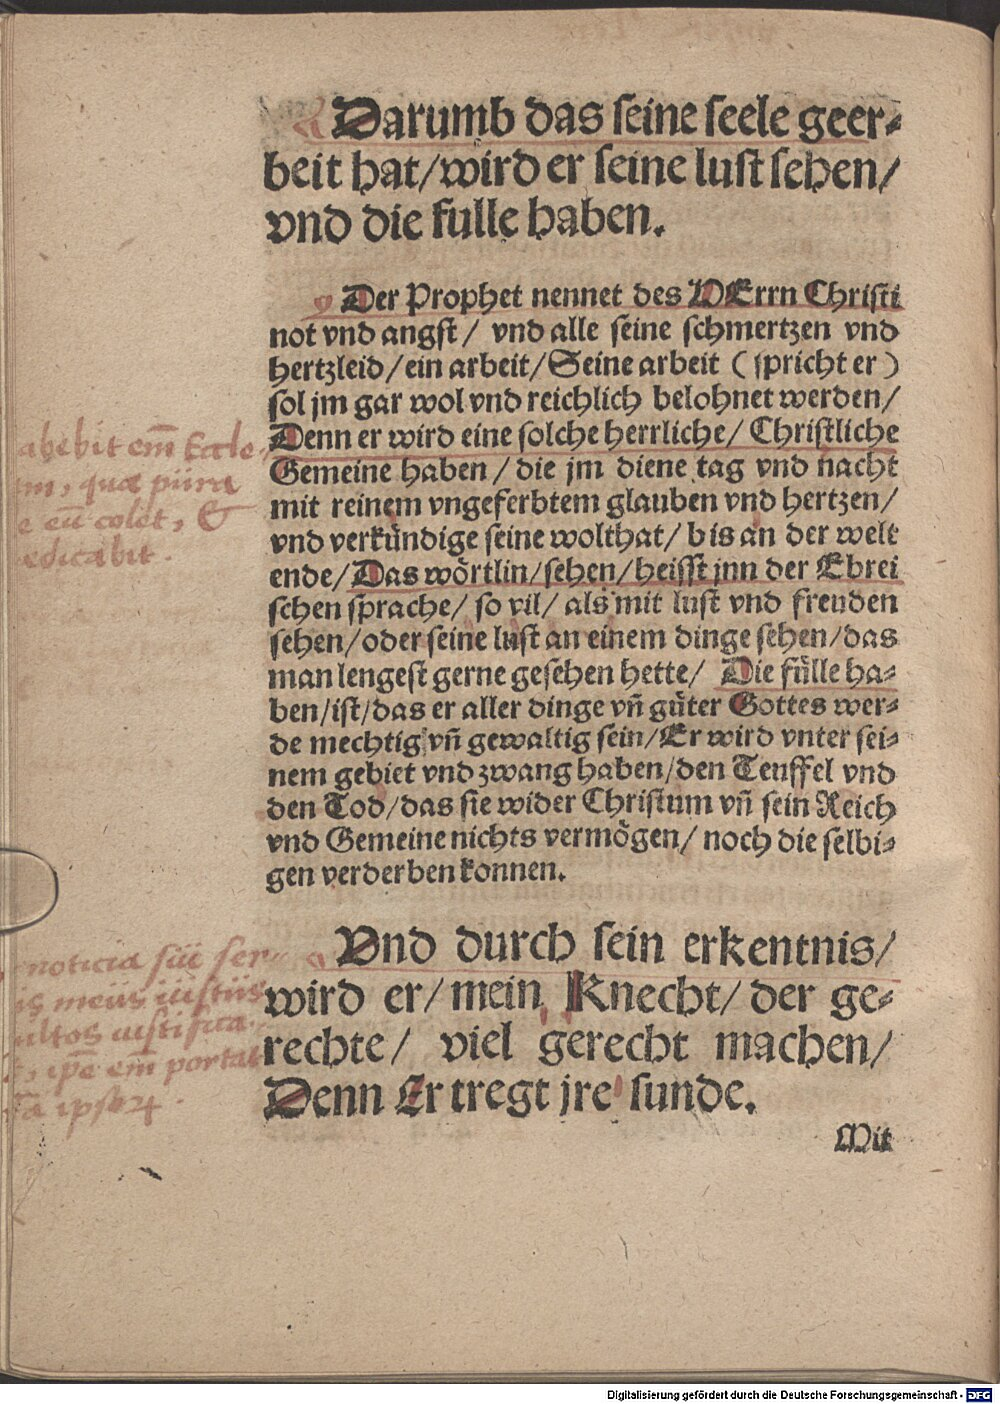 Darumb das seine seele geer⸗
beit hat/ wird er seine lust sehen/
vnd die fulle haben.
Der Prophet nennet des HErrn Christi
not vnd angst/ vnd alle seine schmertzen vnd
hertzleid/ ein arbeit/ Seine arbeit (spricht er)
sol jm gar wol vnd reichlich belohnet werden/
Denn er wird eine solche herrliche/ Christliche
Gemeine haben/ die jm diene tag vnd nacht
mit reinem vngeferbtem glauben vnd hertzen/
vnd verkündige seine wolthat/ bis an der welt
ende/ Das wörtlin/ sehen/ heisst jnn der Ebrei
schen sprache/ so vil/ als mit lust vnd freuden
sehen/ oder seine lust an einem dinge sehen/ das
man lengest gerne gesehen hette/ Die fülle ha⸗
ben/ ist/ das er aller dinge vñ güter Gottes wer⸗
de mechtig vñ gewaltig sein/ Er wird vnter sei⸗
nem gebiet vnd zwang haben/ den Teuffel vnd
den Tod/ das sie wider Christum vñ sein Reich
vnd Gemeine nichts vermögen/ noch die selbi⸗
gen verderben konnen.
Vnd durch sein erkentnis/
wird er/ mein Knecht/ der ge⸗
rechte/ viel gerecht machen/
Denn Er tregt jre sunde.
Mit
abebit em̄ Eccle-
quæ pura
e eū colet, &
edicabit.
noticia sui ser-
meus iustus
ultos iustifica
ip̄e em̄ portat
Digitalisierung gefördert durch die Deutsche Forschungsgemeinschaft - DFG